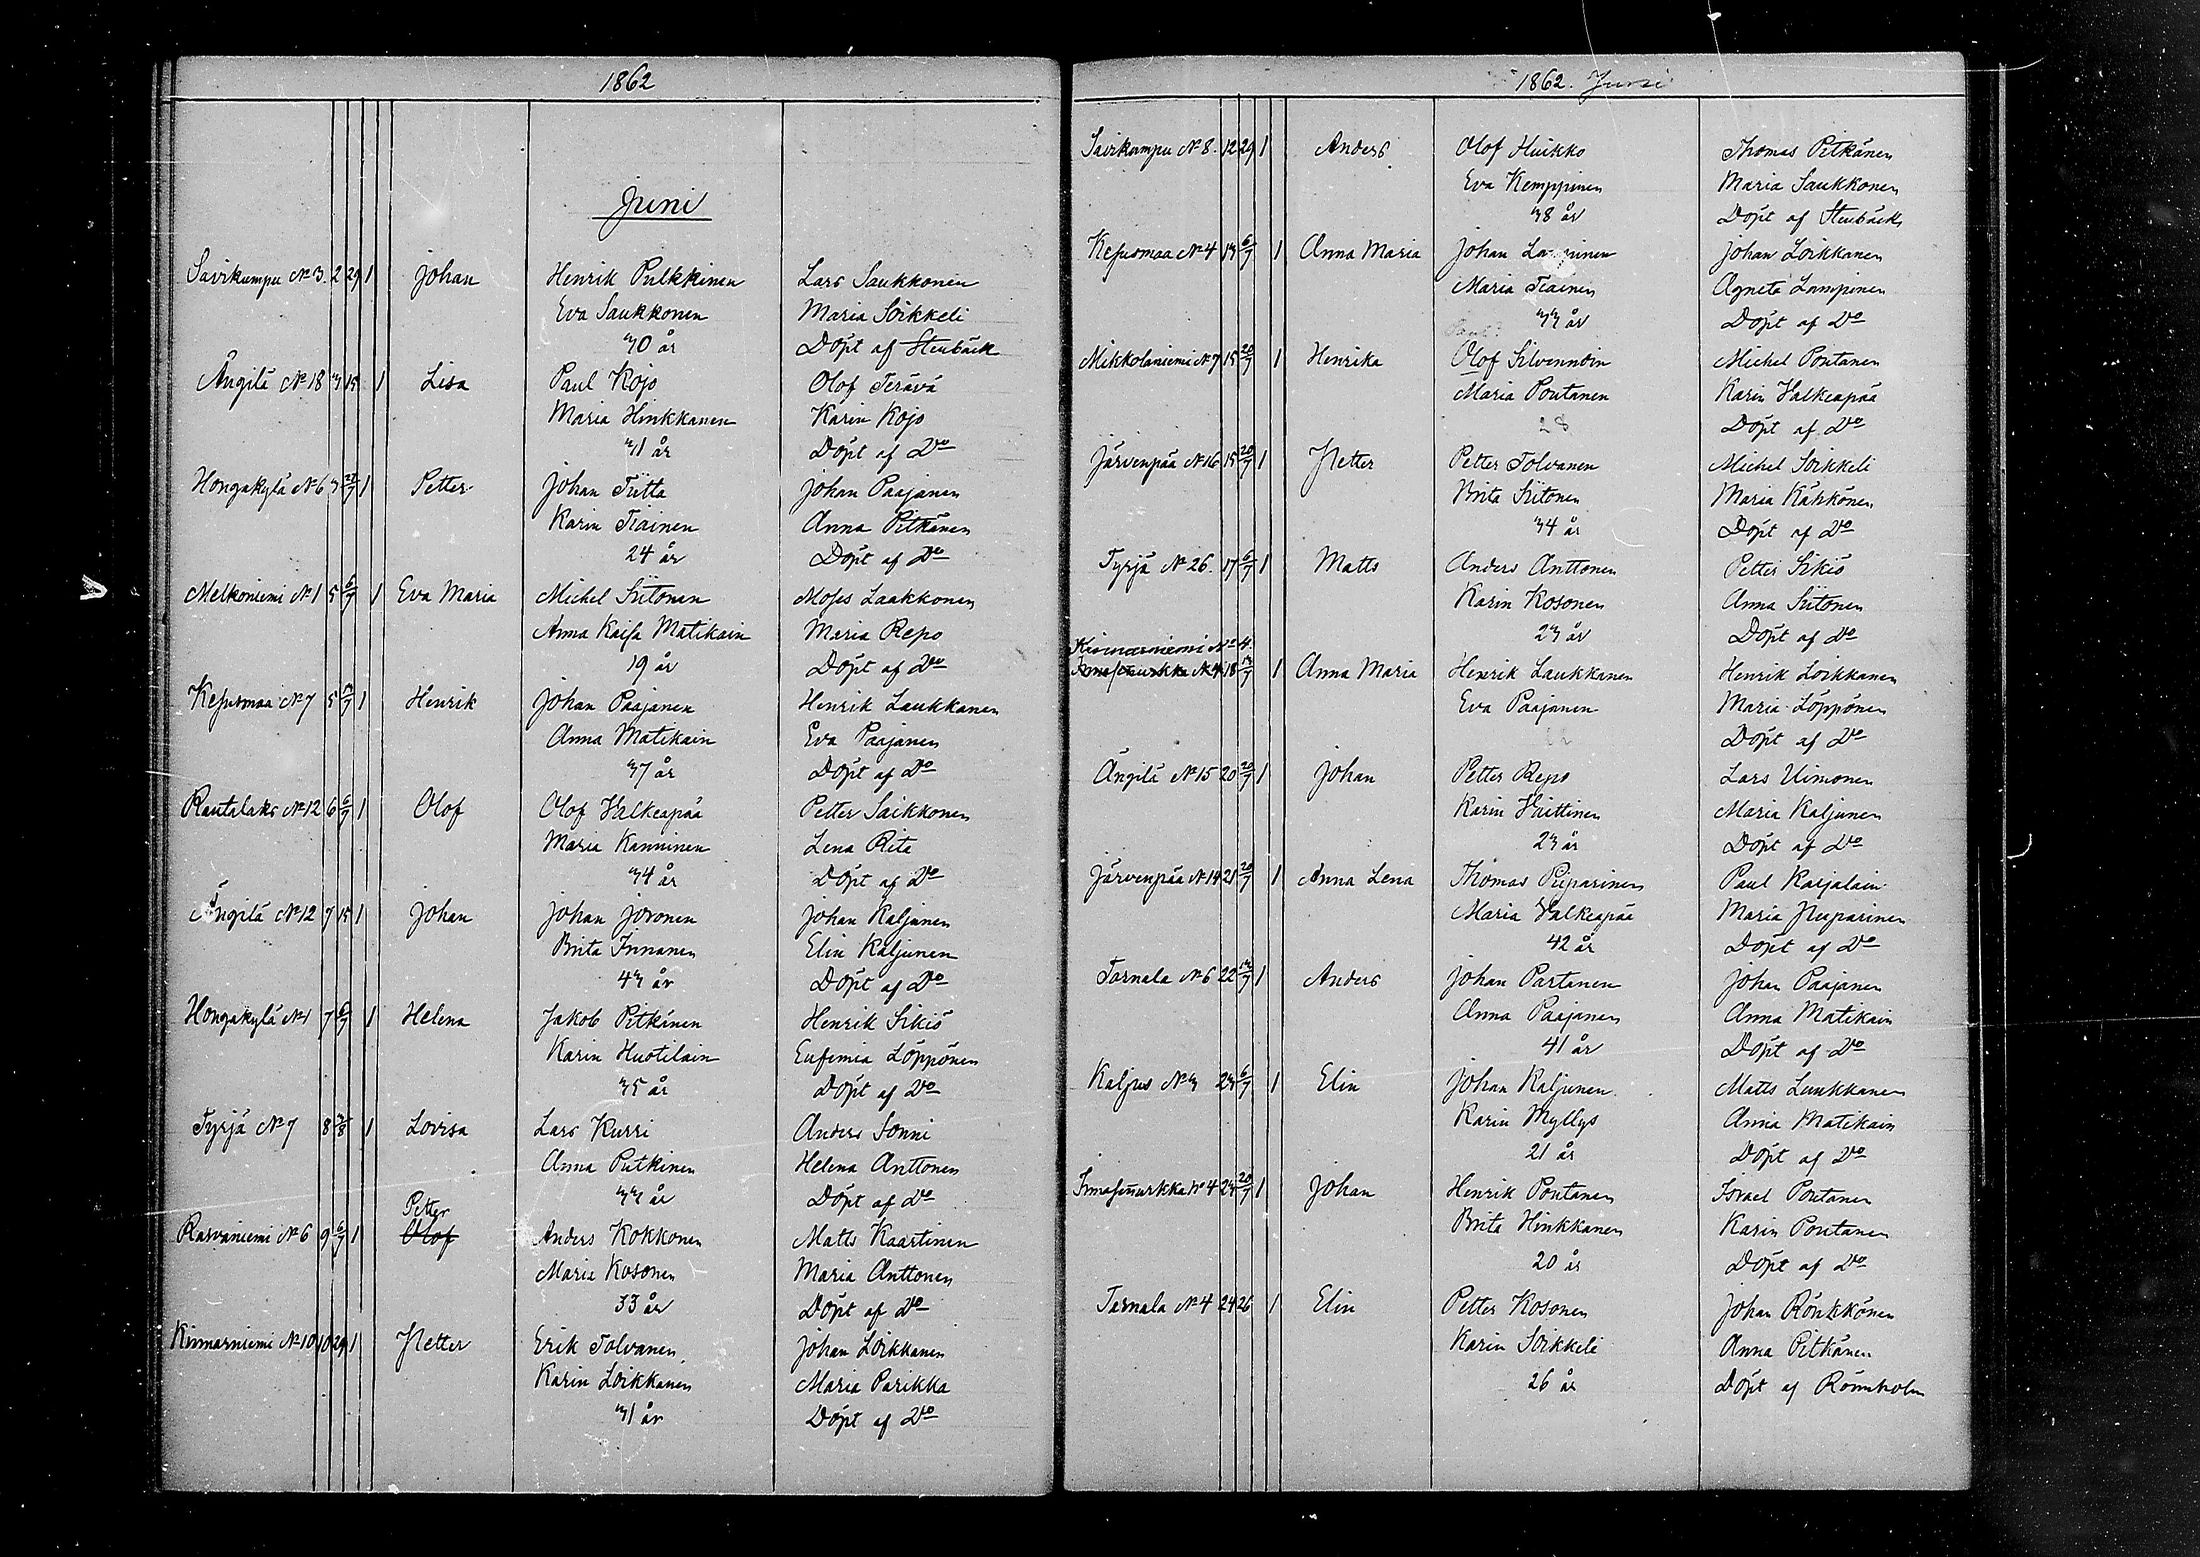 1862
Juni
Savikumpu No 3. 2 29 1 Johan Henrik Pulkkinen Lars Saukkonen
Eva Saukkonen Maria Soikkeli
30 år Döpt af Stenbäck
Ängilä No 18 3 15 1 Lisa Paul Kojo Olof Terävä
Maria Hinkkanen Karin Kojo
31 år Döpt af Do
Hongakylä No 6 3 1 Petter Johan Tiitta Johan Paajanen
Karin Tiainen Anna Pitkänen
24 år Döpt af Do
Melkoniemi No 1 5 6/7 1 Eva Maria Michel Siitonen Moses Laakkonen
Anna Kaisa Matikain Maria Repo
19 år Döpt af Do
Kesusmaa No 7 5 13/7 1 Henrik Johan Paajanen Henrik Laukkanen
Anna Matikain Eva Paajanen
37 år Döpt af Do
Rautalaks No 12 6 6/7 1 Olof Olof Valkeapää Petter Saikkonen
Maria Kanninen Lena Rita
34 år Döpt af Do
Ängilä No 12 7 15 1 Johan Johan Joronen Johan Kaljunen
Brita Innanen Elin Kaljunen
43 år Döpt af Do
Hongakylä No 1 7 6/7 1 Helena Jakob Pitkänen Henrik Sikiö
Karin Huotilain Eufemia Löppönen
35 år Döpt af Do
Tyrjä No 7 8 3/8 1 Lovisa Lars Kurri Anders Sonni
Anna Putkinen Helena Anttonen
33 år Döpt af Do
Petter
Rasvaniemi No 6 9 6/7 1 Olof Anders Kokkonen Matts Kaartinen
Maria Kosonen Maria Anttonen
33 år Döpt af Do
Kinnarniemi No 10 10 29 1 Petter Erik Tolvanen Johan Loikkanen
Karin Loikkanen Maria Parikka
31 år Döpt af Do
1862. Juni
Savikumpu No 8. 12 29 1 Anders Olof Huikko Thomas Pitkänen
Eva Kemppinen Maria Saukkonen
38 år Döpt af Stenbäck
Kesusmaa No 4 13 6/7 1 Anna Maria Johan Johan Loikkanen
Maria Tiainen Agneta Lampinen
33 år Döpt af Do
Mikkolaniemi No 7 15 20/7 1 Henrika Olof Silvennoin Michel Poutanen
Maria Poutanen Karin Valkeapää
28 Döpt af Do
Järvenpää No 16 15 20/7 1 Petter Petter Tolvanen Michel Soikkeli
Brita Siitonen Maria Kähkönen
34 år Döpt af Do
Tyrjä No 26. 17 6/7 1 Matts Anders Anttonen Petter Sikiö
Karin Kosonen Anna Siitonen
23 år Döpt af Do
Kinnarniemi No 4.
No 4 18 13/7 1 Anna Maria Henrik Laukkanen Henrik Loikkanen
Eva Paajanen Maria Löppönen
Döpt af Do
Ängilä No 15 20 20/7 1 Johan Petter Repo Lars Uimonen
Karin Vaittinen Maria Kaljunen
23 år Döpt af Do
Järvenpää No 14 21 20/7 1 Anna Lena Thomas Piiparinen Paul Karjalain
Maria Valkeapää Maria Piiparinen
42 år Döpt af Do
Tarnala No 6 22 13/7 1 Anders Johan Partanen Johan Paajanen
Anna Paajanen Anna Matikain
41 år Döpt af Do
Kaljus No 3 23 6/7 1 Elin Johan Kaljunen Matts Laukkanen
Karin Myllys Anna Matikain
21 år Döpt af Do
No 4 23 20/7 1 Johan Henrik Poutanen Israel Poutanen
Brita Hinkkanen Karin Poutanen
20 år Döpt af Do
Tarnala No 4 24 26 1 Elin Petter Kosonen Johan Rönkkönen
Karin Soikkeli Anna Pitkänen
26 år Döpt af Rönnholm